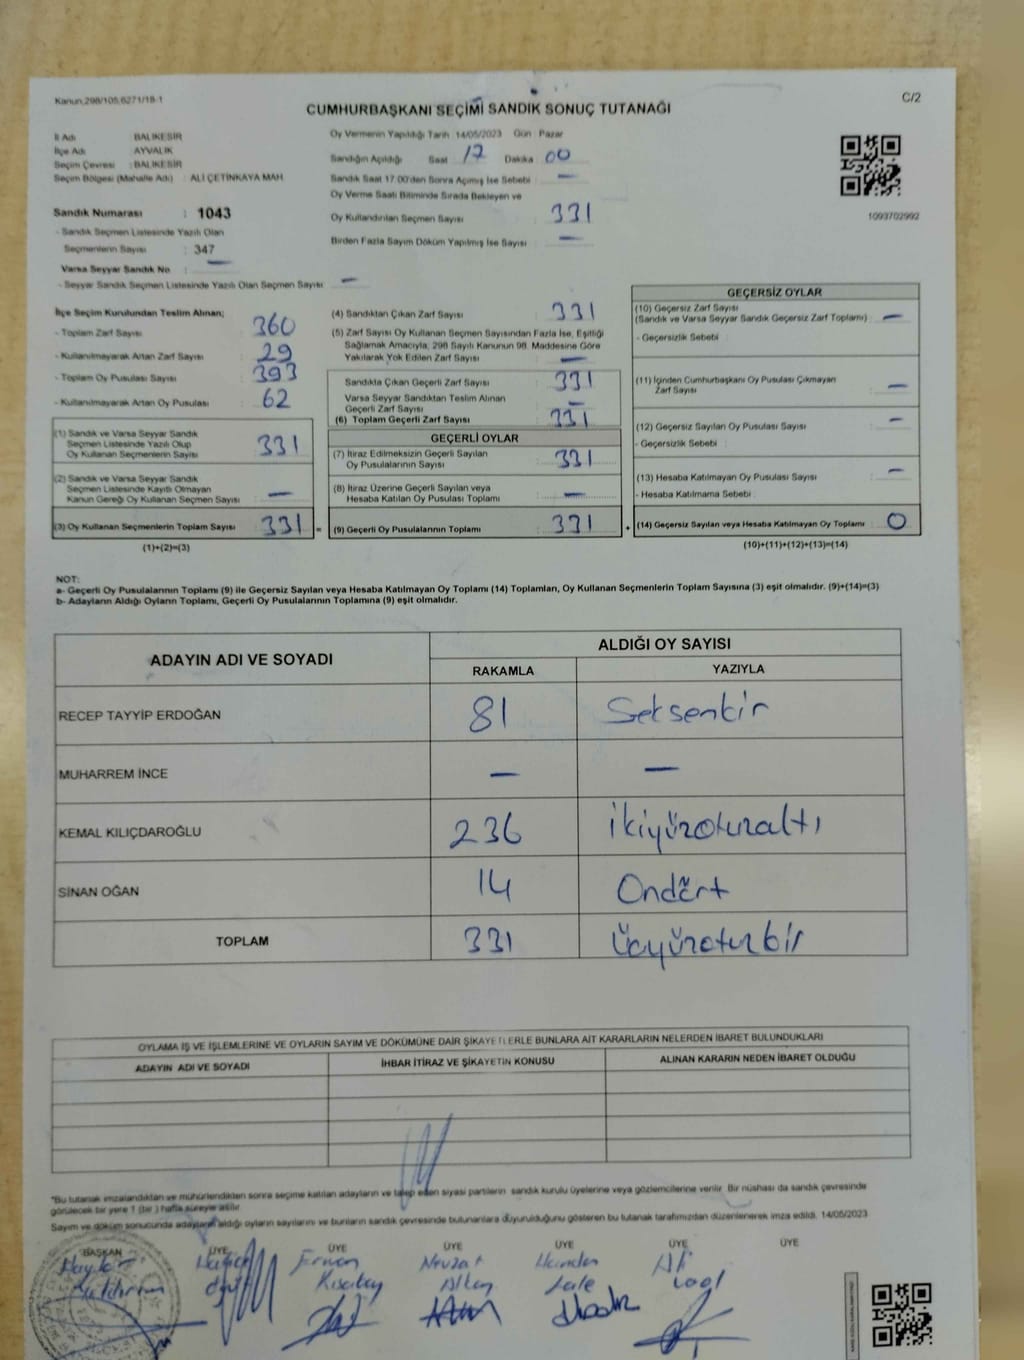 Kanun,298/105,6271/18-1
C/2
CUMHURBAŞKANI SEÇİMİ SANDIK SONUÇ TUTANAĞI
İl Adı : BALIKESİR
İlçe Adı : AYVALIK
Seçim Çevresi : BALIKESİR
Seçim Bölgesi (Mahalle Adı) : ALİ ÇETİNKAYA MAH
Sandık Numarası : 1043
- Sandık Seçmen Listesinde Yazılı Olan
Seçmenlerin Sayısı : 347
Varsa Seyyar Sandık No : —
- Seyyar Sandık Seçmen Listesinde Yazılı Olan Seçmen Sayısı : —
Oy Vermenin Yapıldığı Tarih 14/05/2023 Gün Pazar
Sandığın Açıldığı Saat 17 Dakika 00
Sandık Saat 17.00'den Sonra Açımış İse Sebebi —
Oy Verme Saati Bitiminde Sırada Bekleyen ve
Oy Kullandırılan Seçmen Sayısı 331
Birden Fazla Sayım Döküm Yapılmış İse Sayısı —
1093702992
İlçe Seçim Kurulundan Teslim Alınan;
- Toplam Zarf Sayısı : 360
- Kullanılmayarak Artan Zarf Sayısı : 29
- Toplam Oy Pusulası Sayısı : 393
- Kullanılmayarak Artan Oy Pusulası : 62
(1) Sandık ve Varsa Seyyar Sandık
Seçmen Listesinde Yazılı Olup
Oy Kullanan Seçmenlerin Sayısı : 331
(2) Sandık ve Varsa Seyyar Sandık
Seçmen Listesinde Kayıtlı Olmayan
Kanun Gereği Oy Kullanan Seçmen Sayısı : —
(3) Oy Kullanan Seçmenlerin Toplam Sayısı : 331 =
(1)+(2)=(3)
(4) Sandıktan Çıkan Zarf Sayısı : 331
(5) Zarf Sayısı Oy Kullanan Seçmen Sayısından Fazla İse, Eşitliği
Sağlamak Amacıyla, 298 Sayılı Kanunun 98. Maddesine Göre
Yakılarak Yok Edilen Zarf Sayısı : —
Sandıkta Çıkan Geçerli Zarf Sayısı : 331
Varsa Seyyar Sandıktan Teslim Alınan
Geçerli Zarf Sayısı : —
(6) Toplam Geçerli Zarf Sayısı : 331
GEÇERLİ OYLAR
(7) İtiraz Edilmeksizin Geçerli Sayılan
Oy Pusulalarının Sayısı : 331
(8) İtiraz Üzerine Geçerli Sayılan veya
Hesaba Katılan Oy Pusulası Toplamı : —
(9) Geçerli Oy Pusulalarının Toplamı : 331 +
GEÇERSİZ OYLAR
(10) Geçersiz Zarf Sayısı
(Sandık ve Varsa Seyyar Sandık Geçersiz Zarf Toplamı) : —
- Geçersizlik Sebebi :
(11) İçinden Cumhurbaşkanı Oy Pusulası Çıkmayan
Zarf Sayısı : —
(12) Geçersiz Sayılan Oy Pusulası Sayısı : —
- Geçersizlik Sebebi :
(13) Hesaba Katılmayan Oy Pusulası Sayısı : —
- Hesaba Katılmama Sebebi :
(14) Geçersiz Sayılan veya Hesaba Katılmayan Oy Toplamı : 0
(10)+(11)+(12)+(13)=(14)
NOT:
a- Geçerli Oy Pusulalarının Toplamı (9) ile Geçersiz Sayılan veya Hesaba Katılmayan Oy Toplamı (14) Toplamları, Oy Kullanan Seçmenlerin Toplam Sayısına (3) eşit olmalıdır. (9)+(14)=(3)
b- Adayların Aldığı Oyların Toplamı, Geçerli Oy Pusulalarının Toplamına (9) eşit olmalıdır.
ADAYIN ADI VE SOYADI ALDIĞI OY SAYISI
RAKAMLA YAZIYLA
RECEP TAYYİP ERDOĞAN 81 Seksenbir
MUHARREM İNCE — —
KEMAL KILIÇDAROĞLU 236 İkiyüzotuzaltı
SİNAN OĞAN 14 Ondört
TOPLAM 331 Üçyüzotuzbir
OYLAMA İŞ VE İŞLEMLERİNE VE OYLARIN SAYIM VE DÖKÜMÜNE DAİR ŞİKAYETLERLE BUNLARA AİT KARARLARIN NELERDEN İBARET BULUNDUKLARI
ADAYIN ADI VE SOYADI İHBAR İTİRAZ VE ŞİKAYETİN KONUSU ALINAN KARARIN NEDEN İBARET OLDUĞU
*Bu tutanak imzalandıktan ve mühürlendikten sonra seçime katılan adayların ve talep eden siyasi partilerin sandık kurulu üyelerine veya gözlemcilerine verilir. Bir nüshası da sandık çevresinde
görülecek bir yere 1 (bir) hafta süreyle asılır.
Sayım ve döküm sonucunda adayların aldığı oyların sayılarını ve bunların sandık çevresinde bulunanlara duyurulduğunu gösteren bu tutanak tarafımızdan düzenlenerek imza edildi. 14/05/2023
BAŞKAN ÜYE ÜYE ÜYE ÜYE ÜYE ÜYE
Nevzat Ali
Yıldırım